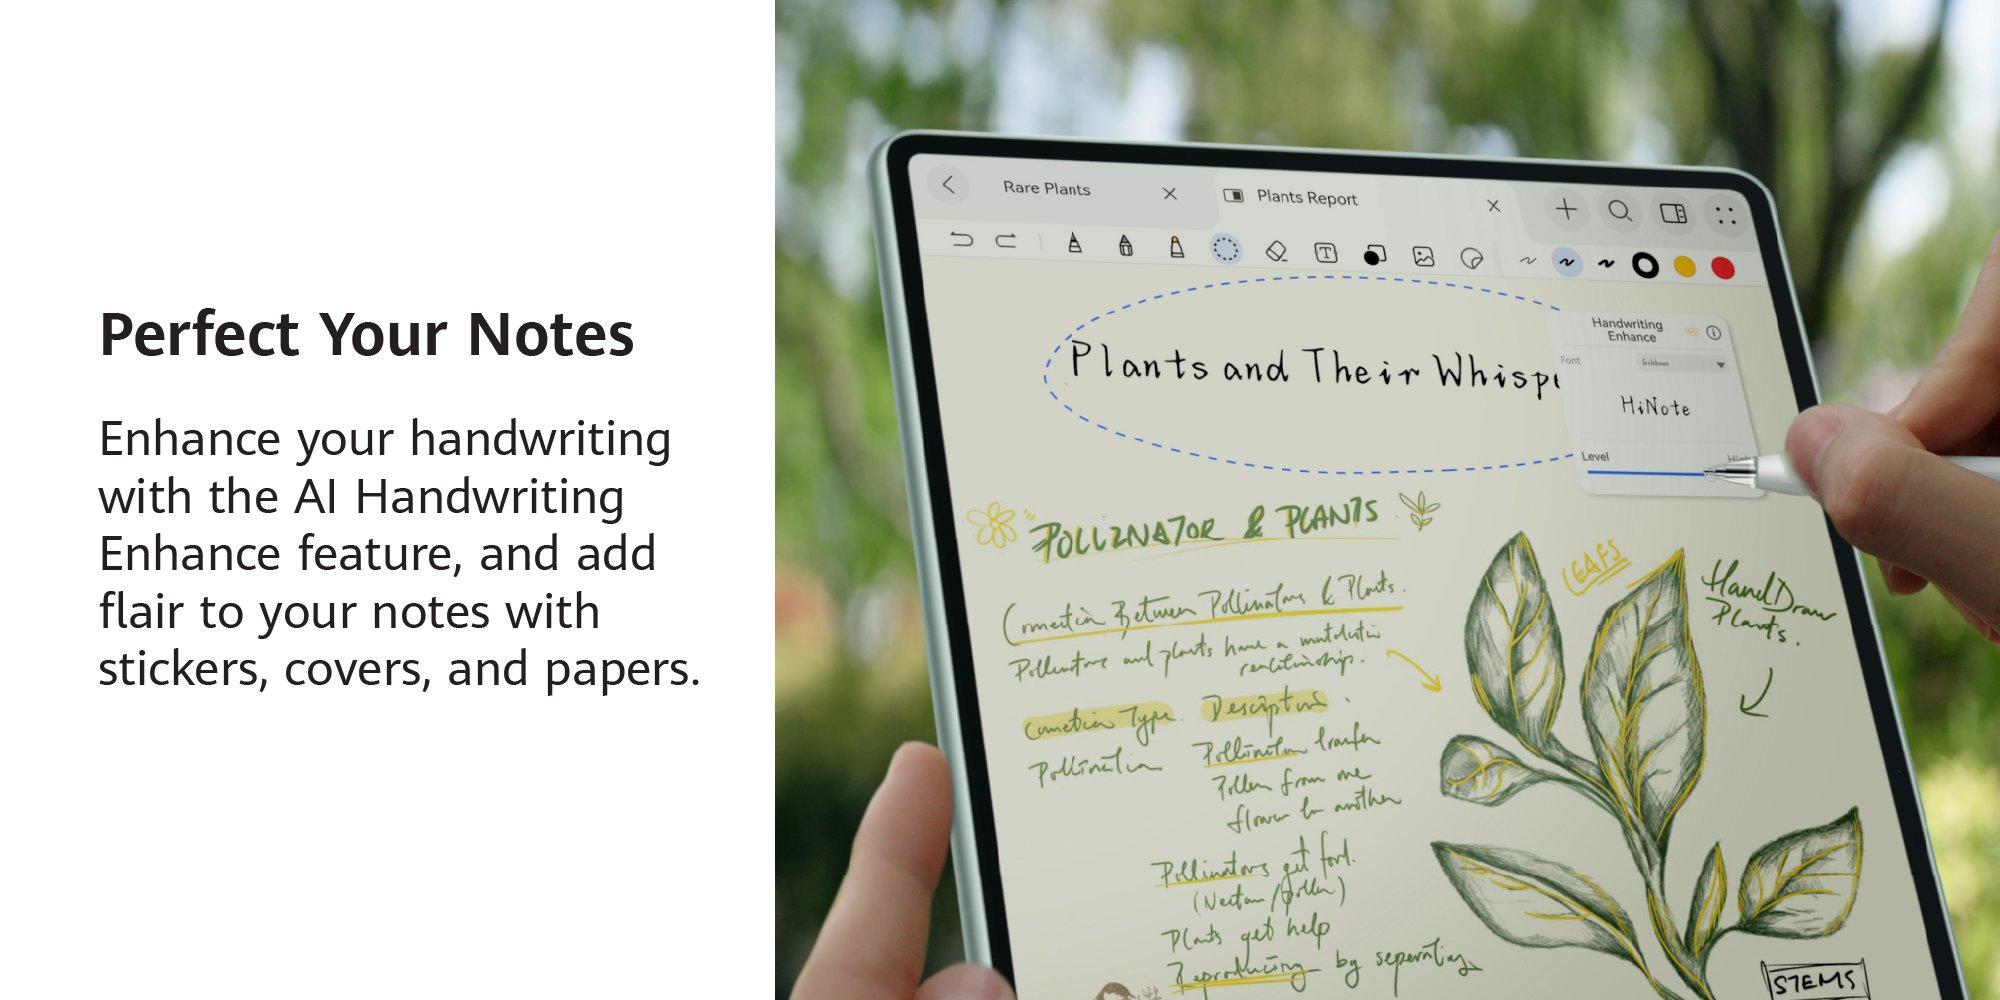 Perfect Your Notes
Enhance your handwriting
with the AI Handwriting
Enhance feature, and add
flair to your notes with
stickers, covers, and papers.
Rare Plants
Plants Report
Plants and Their Whispe
Handwriting
Enhance
Font
HiNote
Level
POLLINATOR & PLANTS
Between Pollinators & Plants.
and plants have a
Description
Pollination
Pollen from one
flower to another
Pollinators get food.
(Nectar/pollen)
Plants get help
Reproducing by
LEAFS
Hand Draw
Plants.
STEMS